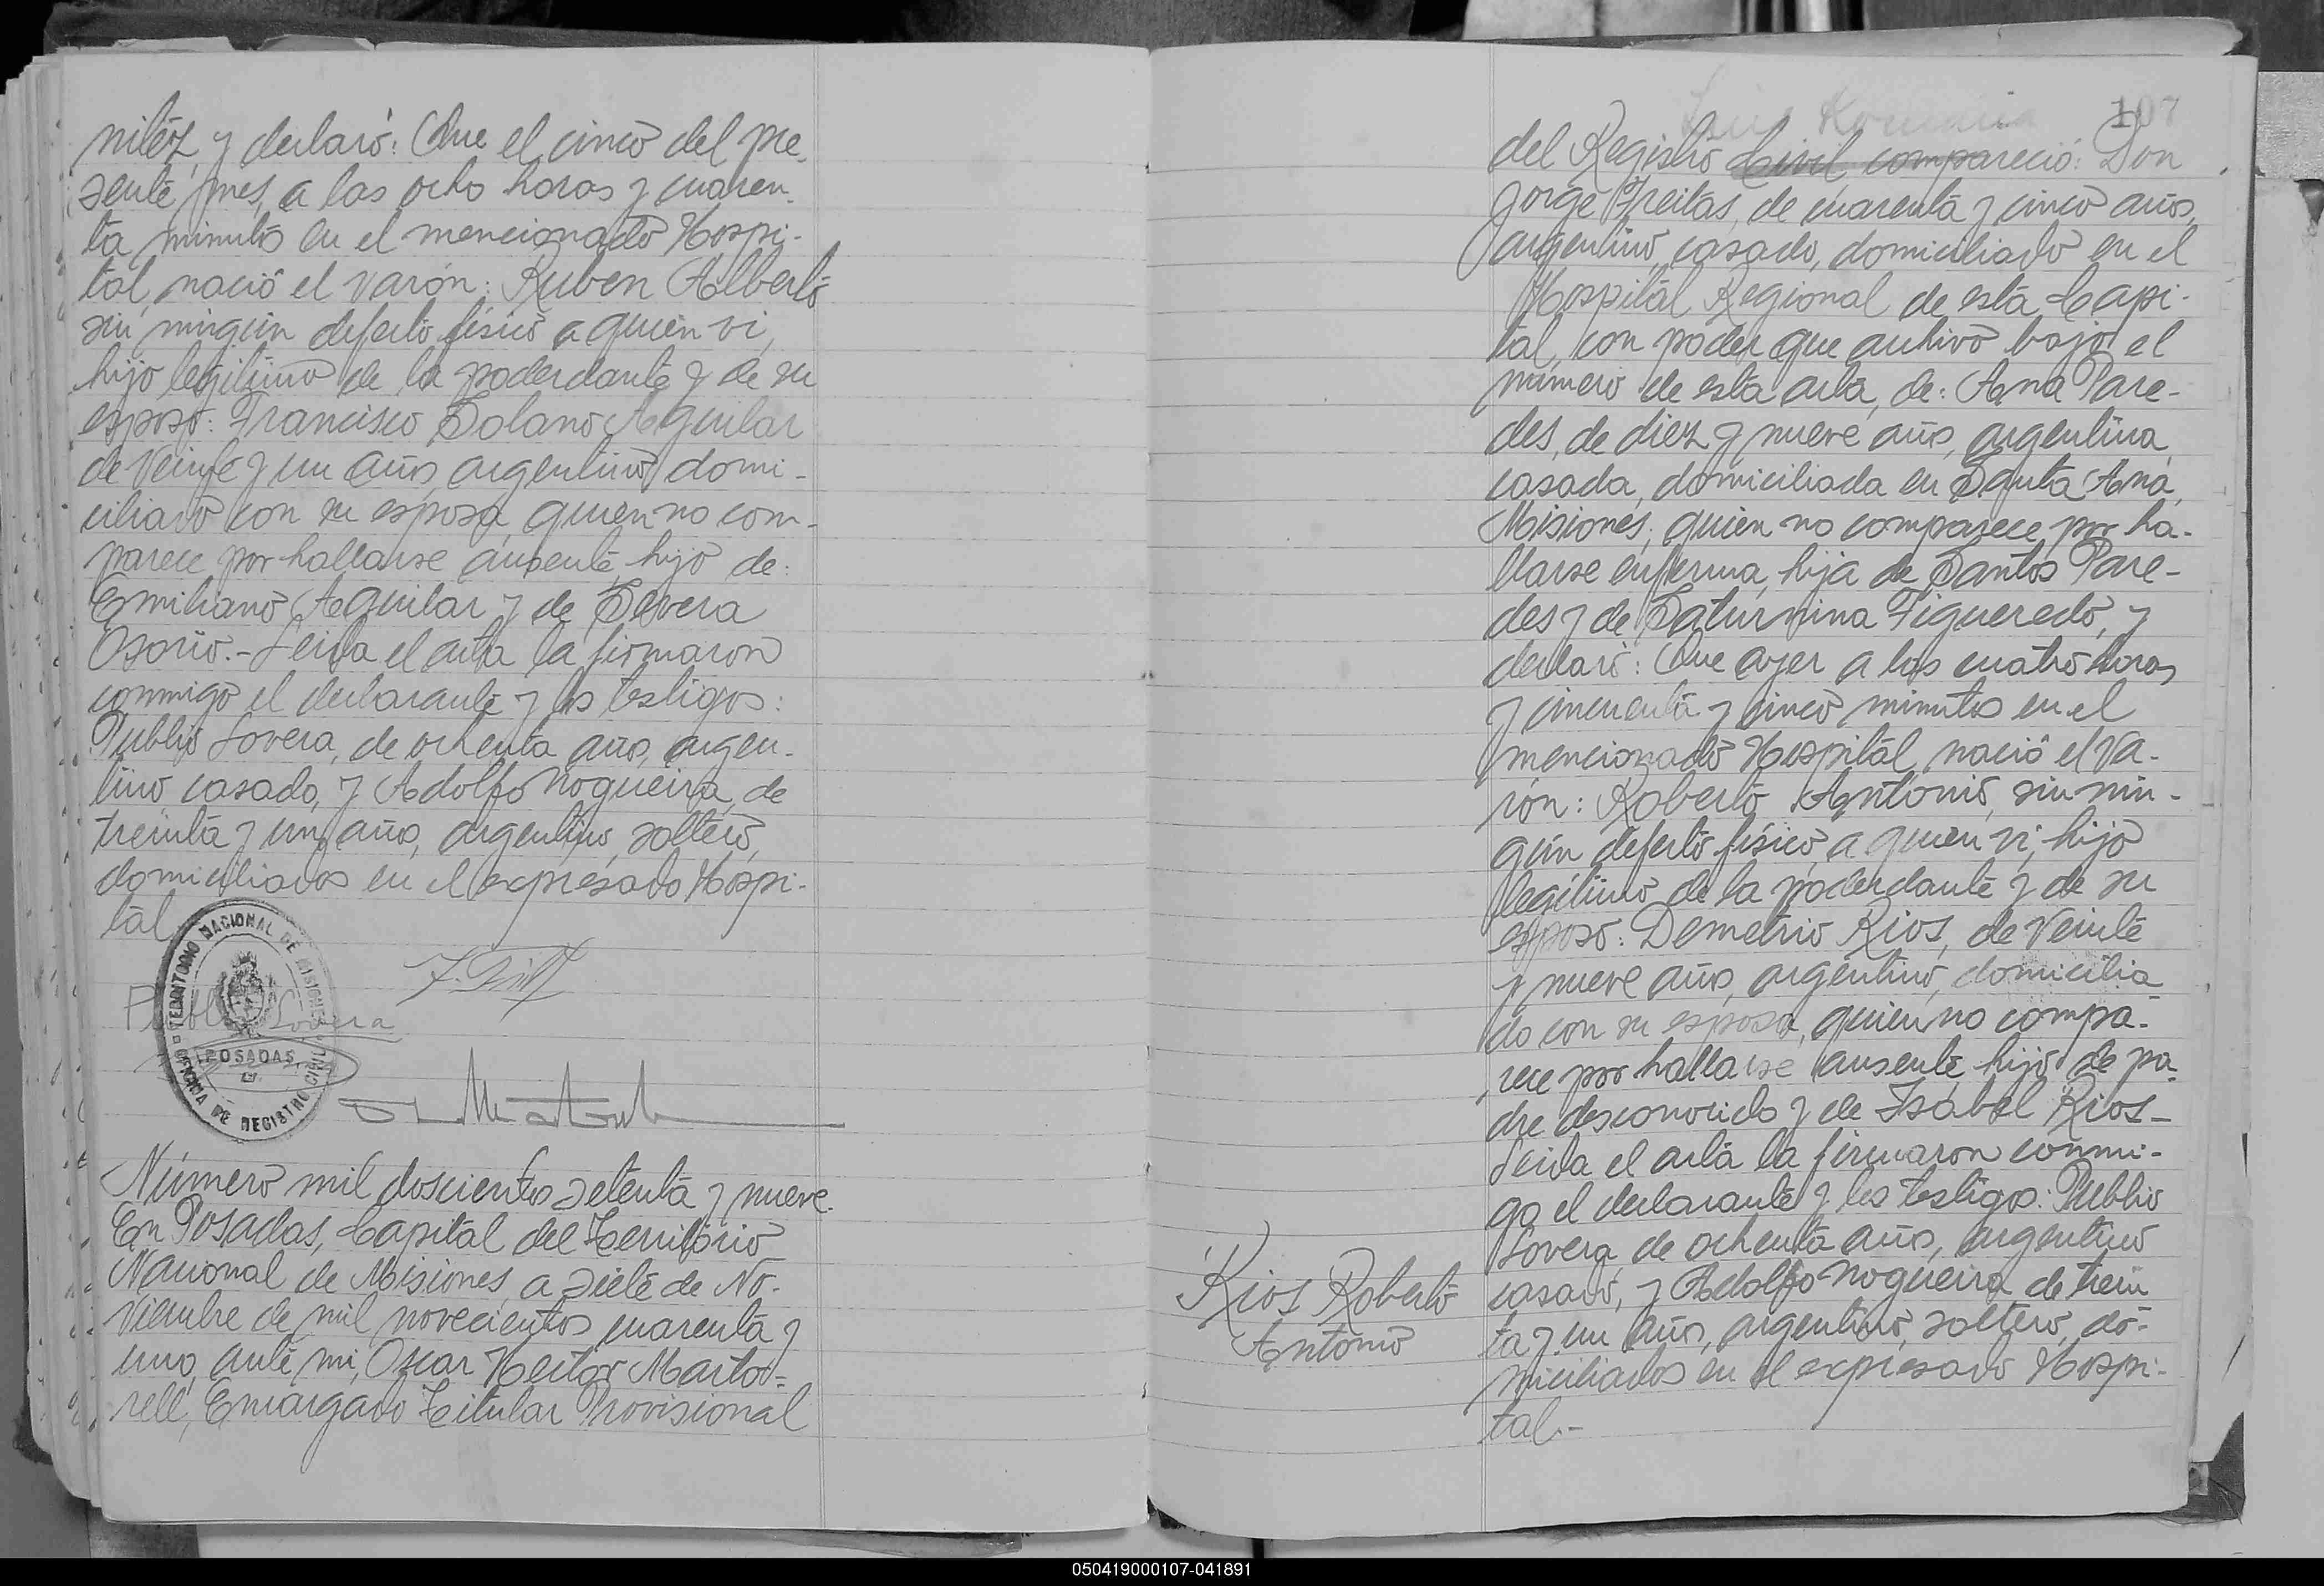 nitez, y declaró: Que el cinco del pre-
sente mes, a las ocho horas y cuaren-
ta minutos en el mencionado Hospi-
tal, nació el varón: Ruben Alberto
sin ningún defecto físico a quien vi,
hijo legítimo de la poderdante y de su
esposo: Francisco Solano Aguilar
de veinte y un años, argentino domi-
ciliado con su esposa, quien no com-
parece por hallarse ausente, hijo de:
Emiliano Aguilar y de Severa
Osorio.- Leida el acta la firmaron
conmigo el declarante y los testigos:
Publio Lovera, de ochenta años, argen-
tino, casado, y Adolfo Nogueira, de
treinta y un años, argentino, soltero,
domiciliados en el expresado Hospi-
tal
TERRITORIO NACIONAL DE MISIONES
POSADAS
OFICINA DE REGISTRO CIVIL
Publio Lovera
Número mil doscientos setenta y nueve.
En Posadas, Capital del Territorio
Nacional de Misiones, a siete de No-
viembre de mil novecientos cuarenta y
uno, ante mi, Oscar Hector Marto-
rell, Encargado Titular Provisional
107
del Registro Civil, compareció: Don
Jorge Freitas, de cuarenta y cinco años,
argentino, casado, domiciliado en el
Hospital Regional de esta Capi-
tal, con poder que archivo bajo el
número de esta acta, de: Ana Pare-
des, de diez y nueve años, argentina,
casada, domiciliada en Santa Ana,
Misiones, quien no comparece por ha-
llarse enferma, hija de Santos Pare-
des y de Saturnina Figueredo, y
declaró: Que ayer a las cuatro horas
y cincuenta y cinco minutos en el
mencionado Hospital, nació el va-
rón: Roberto Antonio, sin nin-
gún defecto físico, a quien vi, hijo
legítimo de la poderdante y de su
esposo: Demetrio Rios, de veinte
y nueve años, argentino, domicilia
do con su esposa, quien no compa-
rece por hallarse ausente, hijo de pa-
dre desconocido y de Isabel Rios-
Leida el acta la firmaron conmi-
go el declarante y los testigos: Publio
Lovera, de ochenta años, argentino
casado, y Adolfo Nogueira de trein
ta y un años, argentino, soltero, do-
miciliados en el expresado Hospi-
tal.-
Rios Roberto
Antonio
050419000107-041891